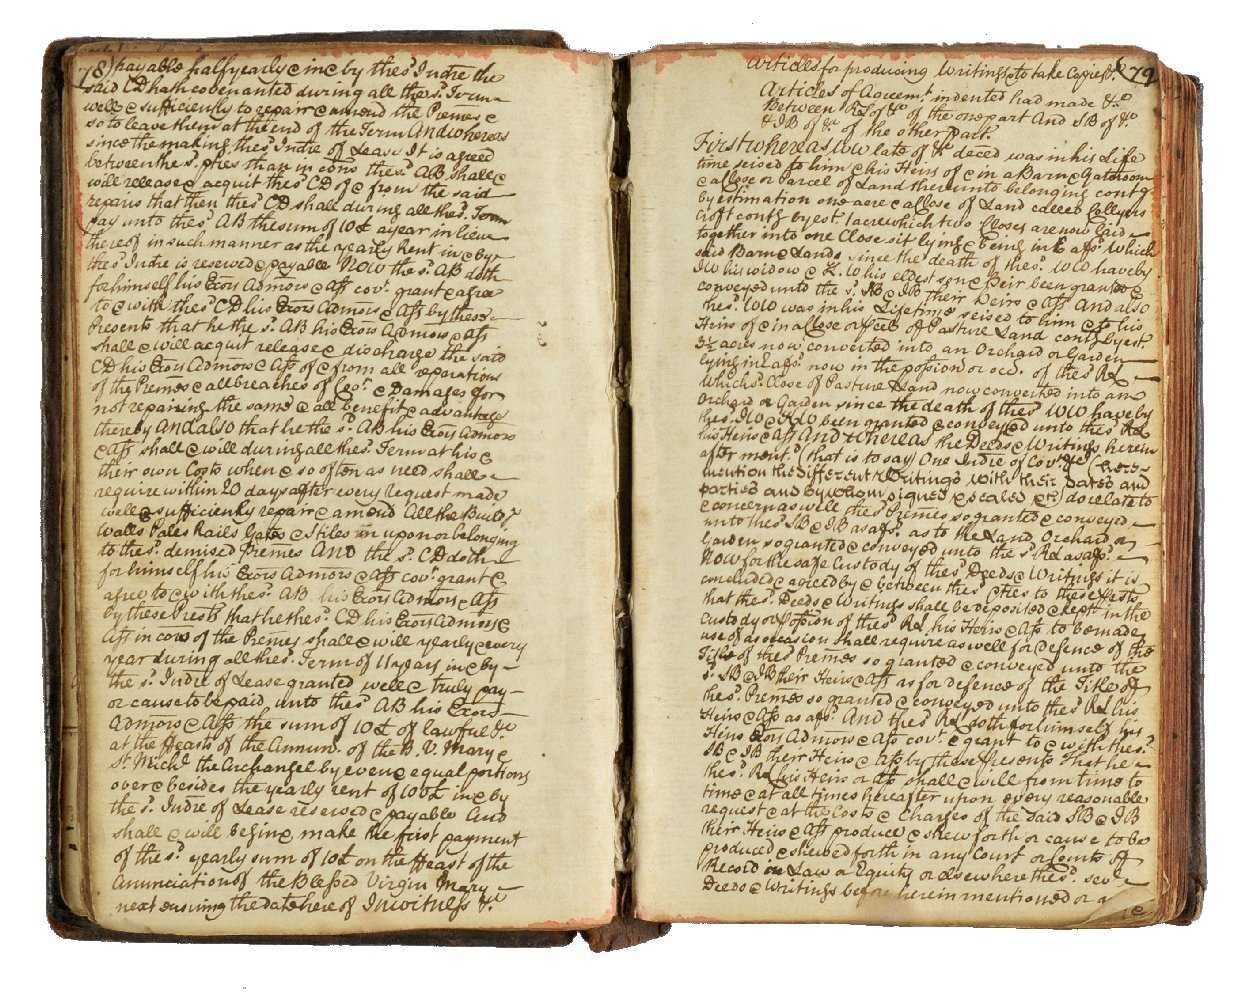 78) payable halfyearly & in & by thes.d Indre the
said CD hath covenanted during all thes.d Term
well & sufficiently to repair & amend the Premes &
so to leave them at the end of the Term And whereas
since the making thes.d Indre of Lease It is agreed
between the s.d pties than in cons thes.d AB shall &
will release & acquit thes.d CD of & from the said
repairs that then thes.d CD shall during all thes.d Term
pay unto thes.d AB the sum of 10£ a year in lieu
thereof in such manner as the yearly Rent in & by
thes.d Indre is reserved & payable Now the s.d AB doth
for himself his Exors Admors & Ass cov.t grant & agree
to & with thes.d CD his Exors Admors & Ass by these
Presents that he the s.d AB his Exors Admors & Ass
shall & will acquit release & discharge the said
CD his Exors Admors & Ass of & from all reparations
of the Premes & all breaches of Cov.t & Damages for
not repairing the same & all benefit & advantage
thereby And also that he the s.d AB his Exors Admors
& Ass shall & will during all thes.d Term at his &
their own Costs when & so often as need shall
require within 20 days after every request made
well & sufficiently repair & amend All the Build.gs
Walls Pales Rails Gates & Stiles in upon or belonging
to thes.d demised Premes And the s.d CD doth
for himself his Exors Admors & Ass cov.t grant &
agree to & with thes.d AB his Exors Admors & Ass
by these Prests that he thes.d CD his Exors Admors &
Ass in cons of the Premes shall & will yearly & every
year during all thes.d Term of 11 years in & by
the s.d Indre of Lease granted well & truly pay
or cause to be paid unto thes.d AB his Exors
Admors & Ass the sum of 10£ of lawful &c
at the Feasts of the Annun. of the B. V. Mary &
St Mich.l the Archangel by even & equal portions
over & besides the yearly rent of 100£ in & by
the s.d Indre of Lease reserved & payable And
shall & will begin & make the first payment
of the s.d yearly sum of 10£ on the Feast of the
Anunciation of the Blessed Virgin Mary
next ensuing the date hereof In witness &c
Articles for producing Writings to take Copies &c (79
Articles of Agreem.t indented had made &c
Between RL of &c of the one part And SB of &c
& IB of &c of the other part.
First whereas WW late of &c deced was in his Life
time seised to him & his Heirs of & in a Barn & Gateroom
& a Close or Parcel of Land thereunto belonging contg
by estimation one acre & a Close of Land called Collyers
Croft contg by est. 1 acre which two Closes are now laid
together into one Close sit lying & being in &c afs.d Which
said Barn & Lands since the death of thes.d WW have by
IW his widow & KW his eldest son & Heir been granted &
conveyed unto the s.d SB & IB their Heirs & Ass And also
thes.d WW was in his Lifetime seised to him & to his
Heirs of & in a Close or Peece of Pasture Land contg by est.
3½ acres now converted into an Orchard or Garden
lying in &c afs.d now in the possion or occ. of thes.d RL
Which s.d Close of Pasture Land now converted into an
Orchard or Garden since the death of thes.d WW have by
thes.d IW & KW been granted & conveyed unto thes.d RL
his Heirs & Ass And Whereas the Deeds & Writings herein
after ment.d (that is to say) One Indre of Cov.ts &c (here
mention the different Writings with their Dates and
parties and by whom signed & sealed &c) do relate to
& concern as well thes.d Premes so granted & conveyed
unto thes.d SB & IB as afs.d as to the Land Orchard or
Garden so granted & conveyed unto the s.d RL as afs.d
Now for the safe Custody of thes.d Deeds & Writings it is
concluded & agreed by & between thes.d Pties to these Prests
that thes.d Deeds & Writings shall be deposited & kept in the
Custody or Possion of thes.d RL his Heirs & Ass to be made
use of as occasion shall require as well for Defence of the
Title of thes.d Premes so granted & conveyed unto the
s.d SB & IB their Heirs & Ass as for defence of the Title of
thes.d Premes so granted & conveyed unto thes.d RL his
Heirs & Ass as afs.d And thes.d RL doth for himself his
Heirs Exors Admors & Ass cov.t & grant to & with thes.d
SB & IB their Heirs & Ass by these Presents That he
thes.d RL his Heirs or Ass shall & will from time to
time & at all times hereafter upon every reasonable
request & at the Costs & Charges of the said SB & IB
their Heirs & Ass produce & shew forth or cause to be
produced & shewed forth in any Court or Courts of
Record in Law or Equity or elsewhere the s.d sev.l
Deeds & Writings before herein mentioned or a